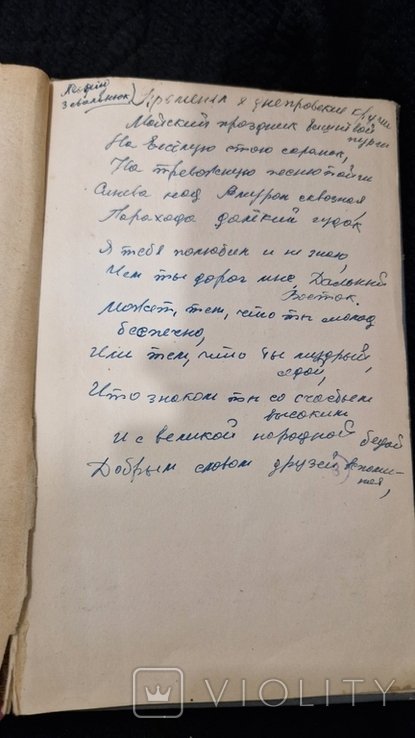 Леонид
Завальнюк
Променял я днепровские кручи
Майский праздник вишнёвой
пурги
На весёлую стаю соранок,
На тревожную песню тайги
Синева над Амуром сквозная,
Парахода далёкий гудок
Я тебя полюбил и не знаю,
Чем ты дорог мне, Дальний
Восток.
Может, тем, что ты молод
беспечно,
Или тем, что ты мудрый,
седой,
Что знаком ты со счастьем
высоким
И с великой народной бедой
Добрым словом друзей вспоми-
ная,
VIOLITY